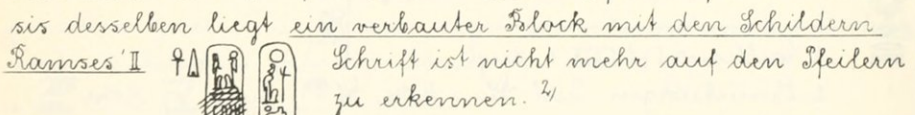 sis desselben liegt ein verbauter Block mit den Schildern
Ramses' II Schrift ist nicht mehr auf den Pfeilern
zu erkennen. 2)